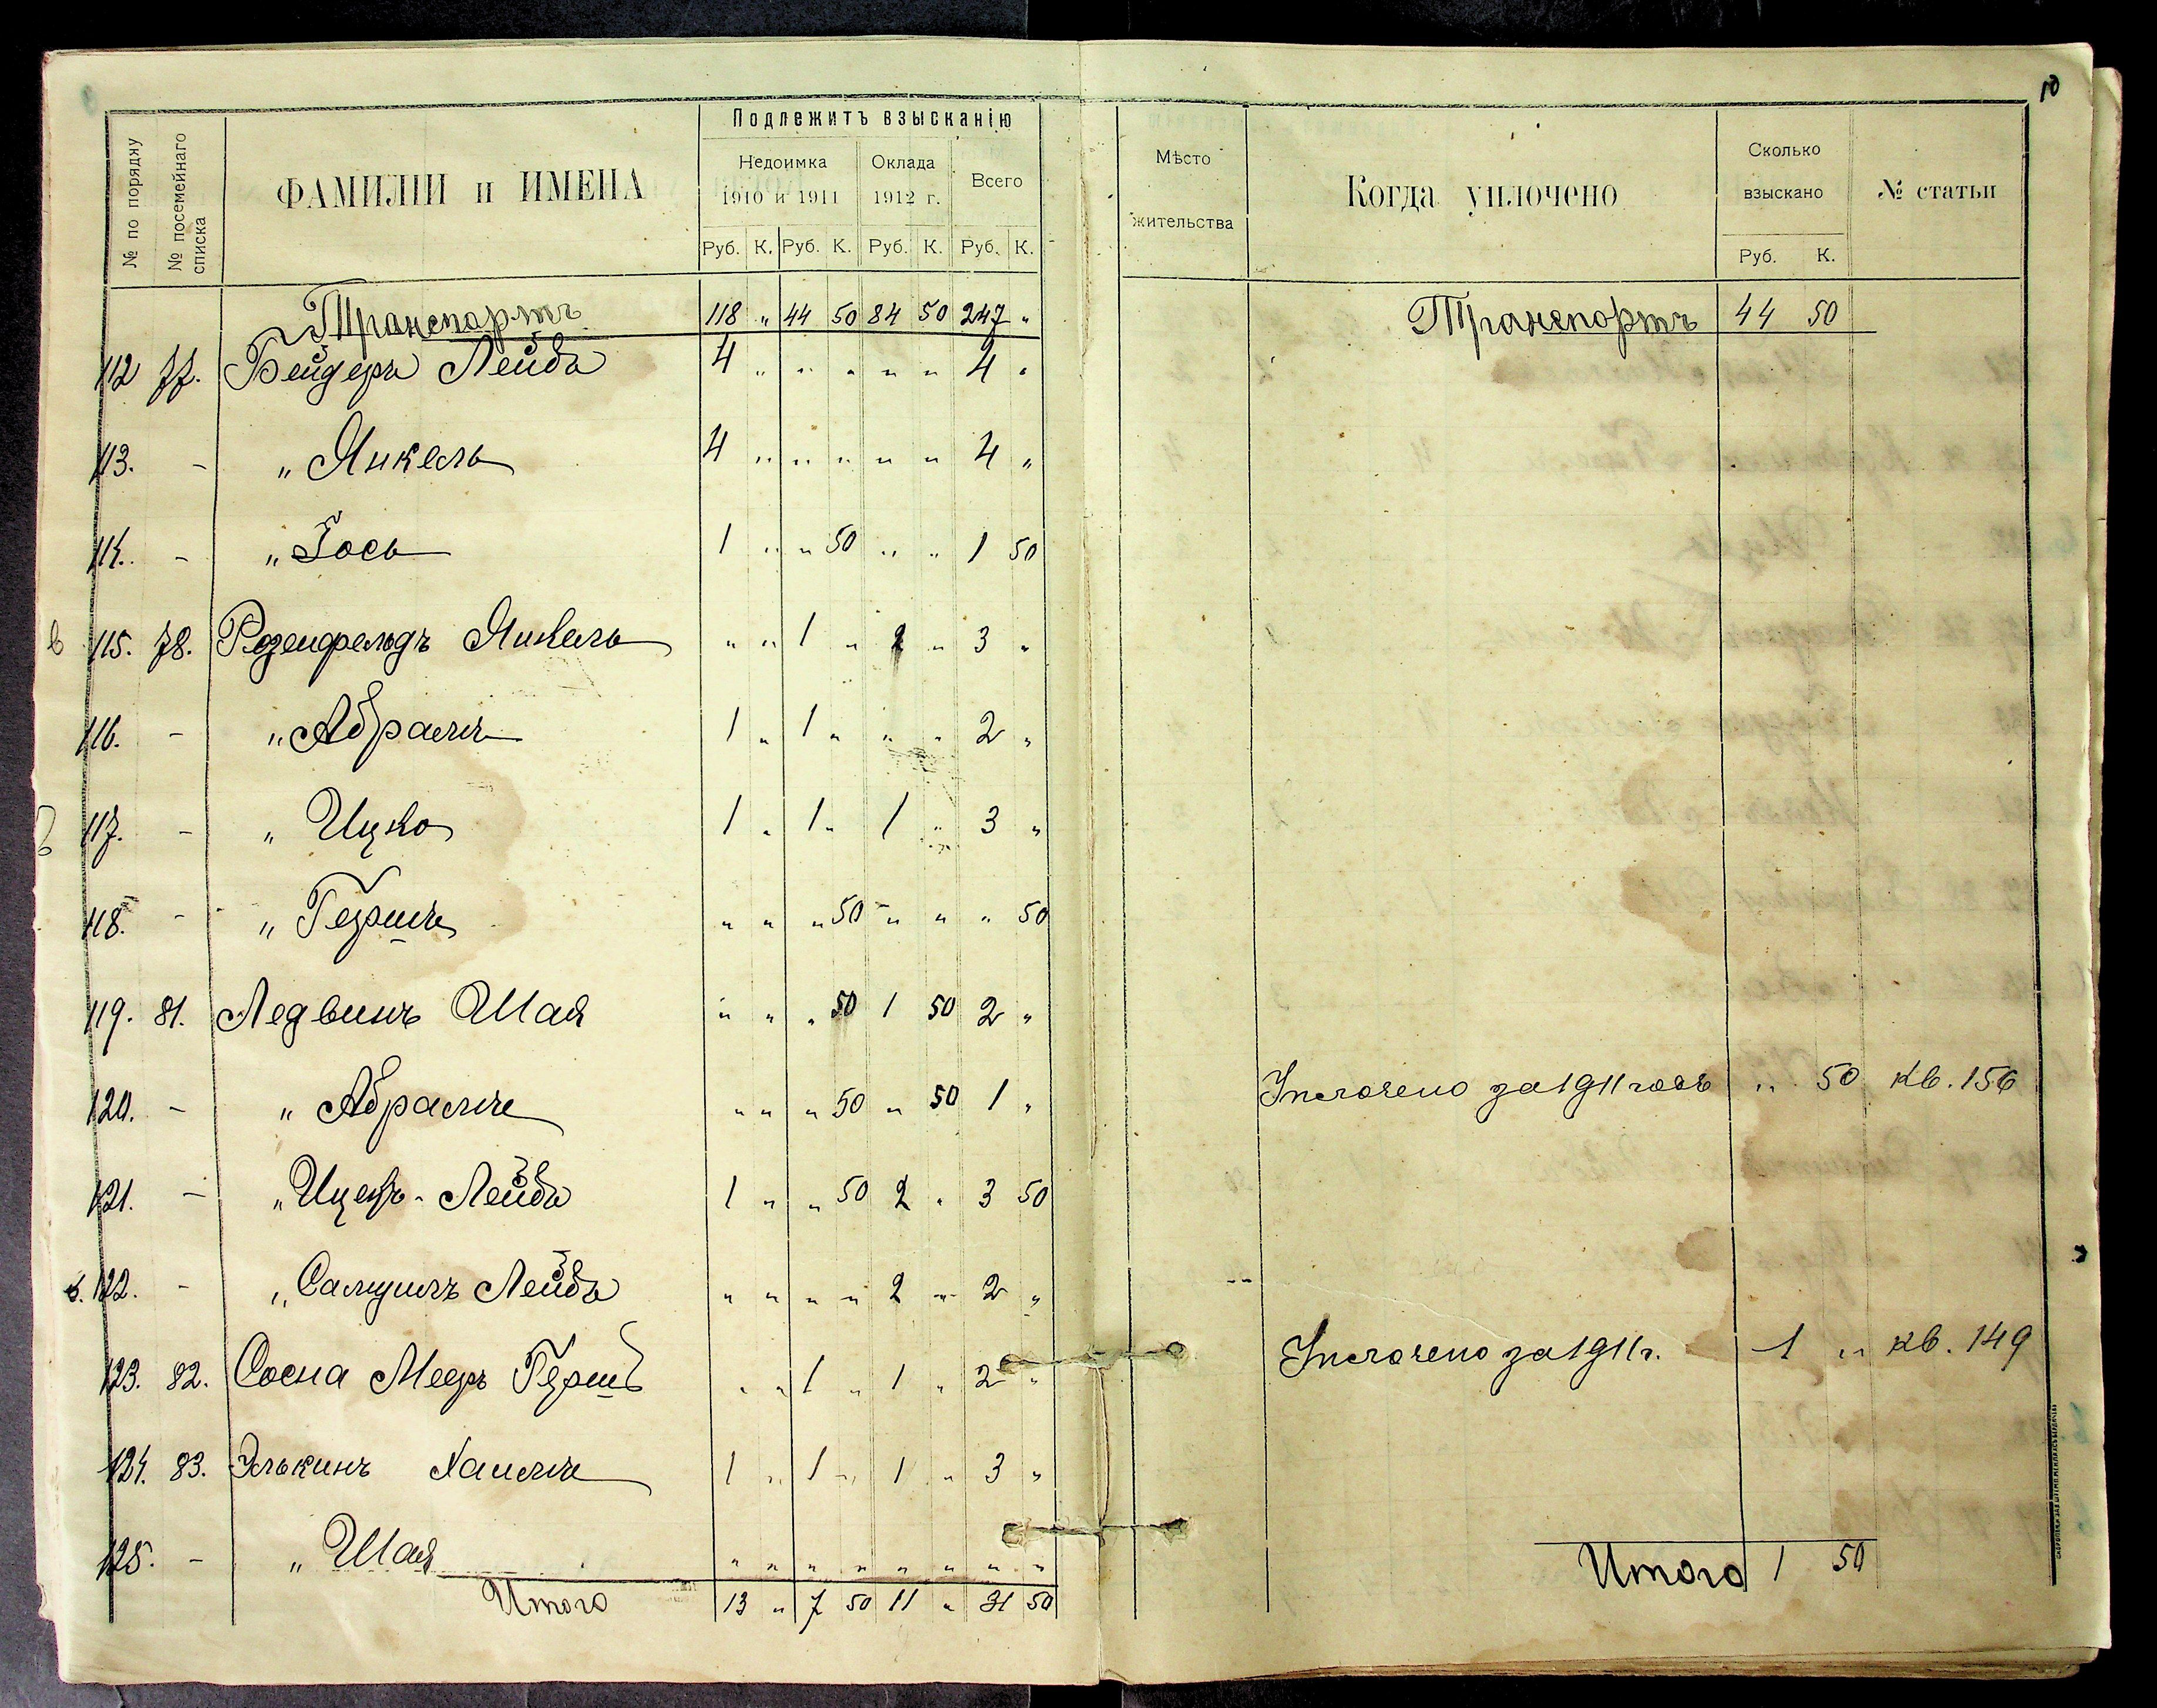 10
№ по порядку
№ посемейнаго списка
ФАМИЛІИ и ИМЕНА
Подлежитъ взысканію
Недоимка
1910 и 1911
Оклада
1912 г.
Всего
Руб. К. Руб. К. Руб. К. Руб. К.
Мѣсто
жительства
Когда уплочено
Сколько
взыскано
Руб. К.
№ статьи
Транспортъ 118 " 44 50 84 50 247 "
Транспортъ 44 50
112 77. Бейдеръ Лейба 4 " " " " " 4 "
113. - " Янкель 4 " " " " " 4 "
114. - " Іось 1 " " 50 " " 1 50
в 115. 78. Розенфельдъ Янкель " " 1 " 2 " 3 "
116. - " Абрамъ 1 " 1 " " " 2 "
117. - " Ицко 1 " 1 " 1 " 3 "
118. - " Гершъ " " " 50 " " " 50
119. 81. Ледвинъ Шая " " " 50 1 50 2 "
120. - " Абрамъ " " " 50 " 50 1 "
Уплочено за 1911 годъ " 50 кв. 156
121. - " Ицекъ-Лейба 1 " " 50 2 " 3 50
в. 122. - " Самуилъ Лейба " " " " 2 " 2 "
123. 82. Сосна Мееръ Гершъ " " 1 " 1 " 2 "
Уплочено за 1911 г. 1 " кв. 149
124. 83. Элькинъ Хаимъ 1 " 1 " 1 " 3 "
125. - " Шая " " " " " " " "
Итого 13 " 7 50 11 " 31 50
Итого 1 50